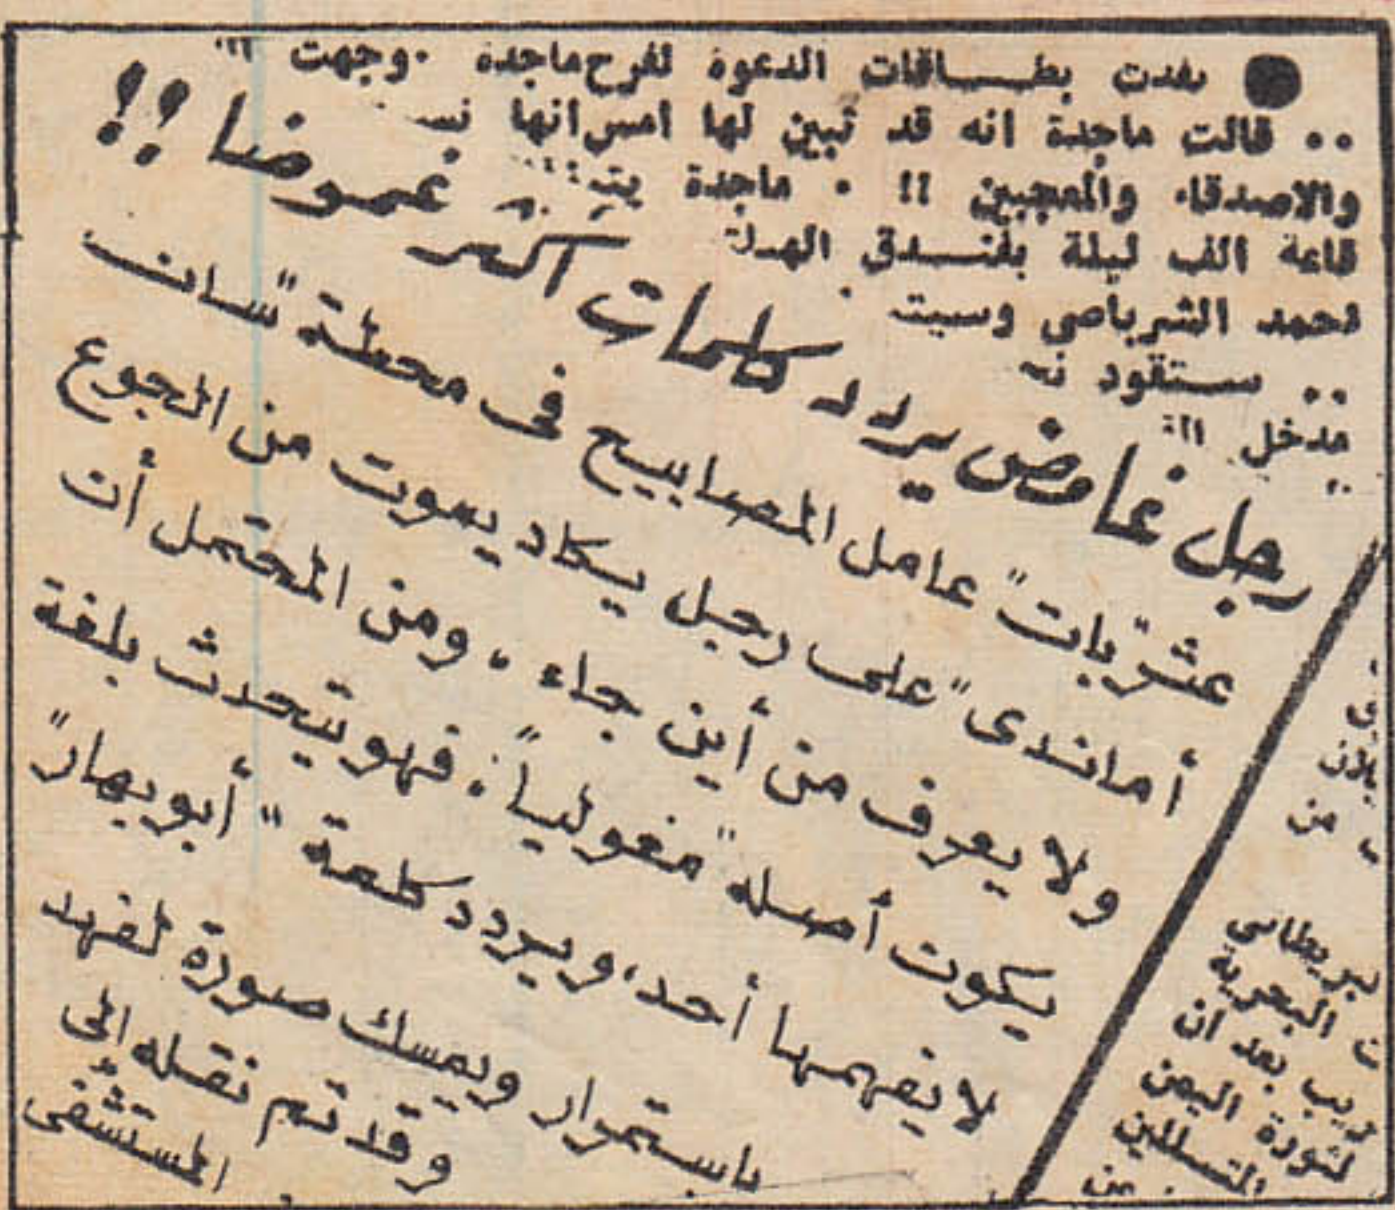 نفدت بطاقات الدعوة لفرح ماجدة . وجهت
.. قالت ماجدة انه قد تبين لها امس انها
والاصدقاء والمعجبين !! . ماجدة
قاعة الف ليلة بفندق
احمد الشرباصي وسيت
.. ستقود
مدخل
رجل غامض يردد كلمات أكثر غموضا !!
عثر بات" عامل المصابيح فى محطة "سانت
أماندى" على رجل يكاد يموت من الجوع
ولا يعرف من أين جاء ، ومن المحتمل أن
يكون أصله "مغوليا" : فهو يتحدث بلغة
لا يفهمها أحد، ويردد كلمة "أبو يهار"
باستمرار ويمسك صورة لفهد
وقد تم نقله إلى
المستشفى
من
البحرية
بعد ان
لثورة اليمن
المتسللين
من